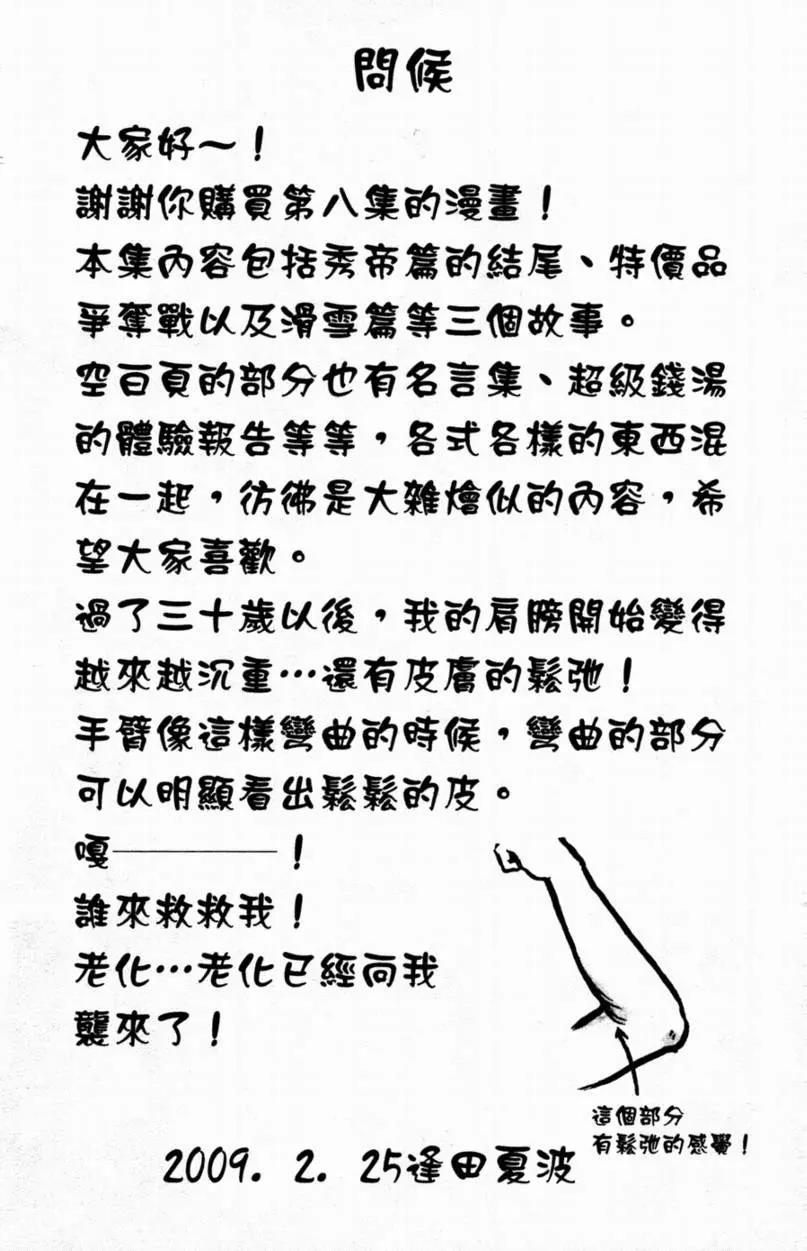 問候
大家好～！
謝謝你購買第八集的漫畫！
本集內容包括秀帝篇的結尾、特價品
爭奪戰以及滑雪篇等三個故事。
空白頁的部分也有名言集、超級錢湯
的體驗報告等等，各式各樣的東西混
在一起，彷彿是大雜燴似的內容，希
望大家喜歡。
過了三十歲以後，我的肩膀開始變得
越來越沉重…還有皮膚的鬆弛！
手臂像這樣彎曲的時候，彎曲的部分
可以明顯看出鬆鬆的皮。
嘎————！
誰來救救我！
老化…老化已經向我
襲來了！
這個部分
有鬆弛的感覺！
2009. 2. 25逢田夏波